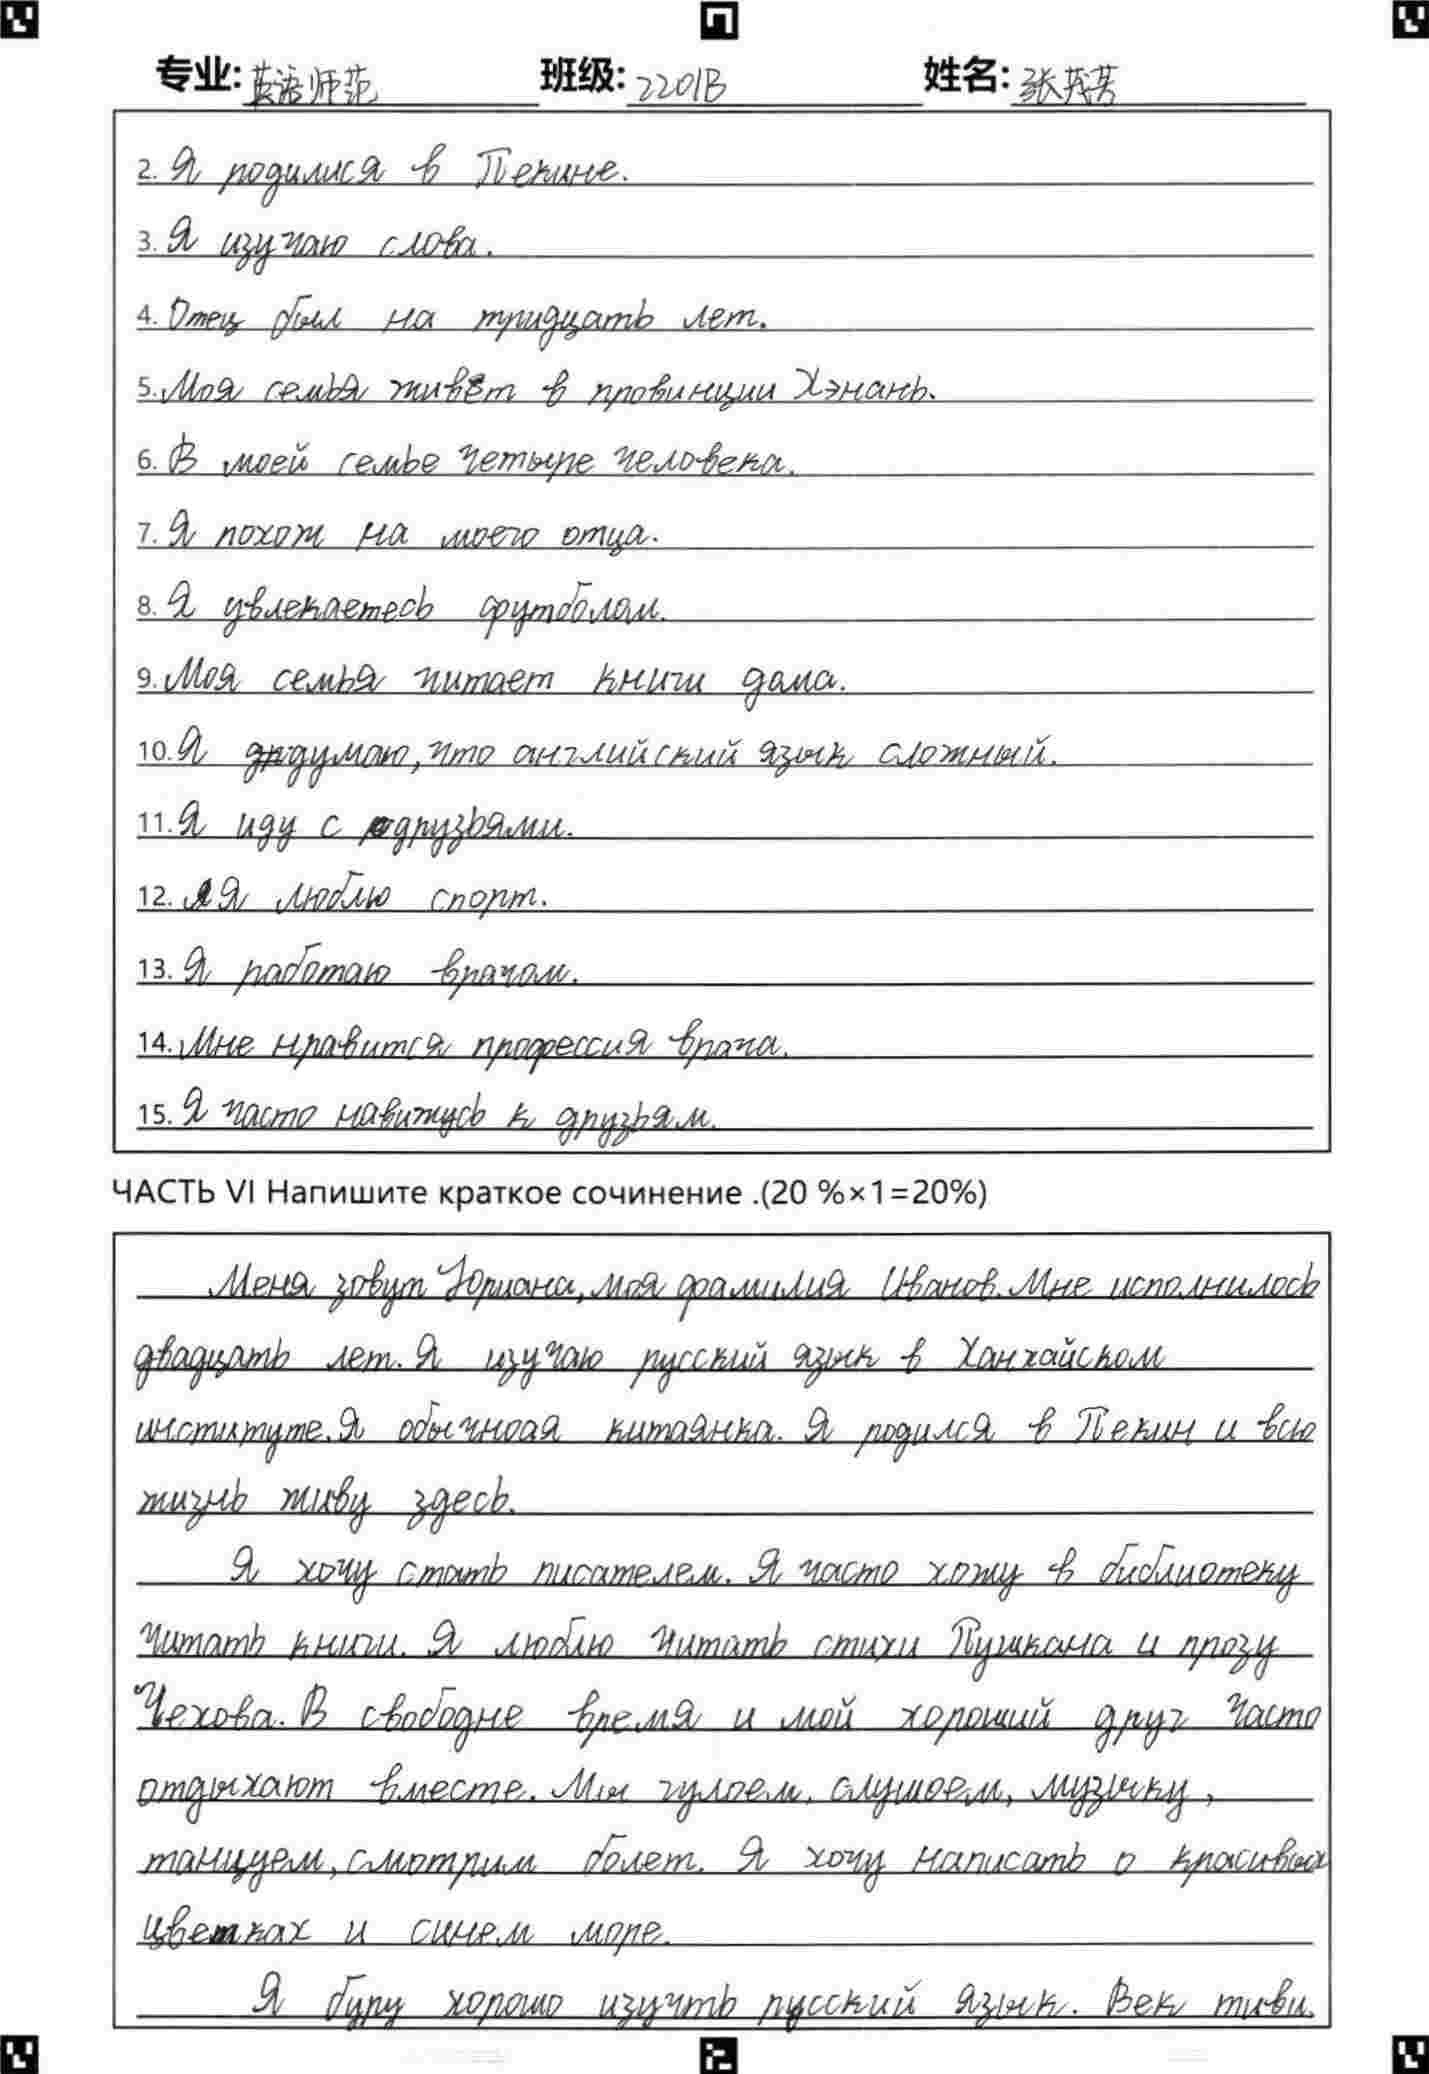 专业: 英语师范 班级: 2201B 姓名: 张茂芳
2. Я родилися в Пекине.
3. Я изучаю слова.
4. Отец был на тридцать лет.
5. Моя семья живёт в провинции Хэнань.
6. В моей семье четыре человека.
7. Я похож на моего отца.
8. Я увлекаетесь футболом.
9. Моя семья читает книги дома.
10. Я думаю, что английский язык сложный.
11. Я иду с друзьями.
12. Я люблю спорт.
13. Я работаю врачом.
14. Мне нравится профессия врача.
15. Я часто навижусь к друзьям.
ЧАСТЬ VI Напишите краткое сочинение .(20 %×1=20%)
Меня зовут моя фамилия Иванов. Мне исполнилось
двадцать лет. Я изучаю русский язык в Ханхайском
институте. Я обычноая китаянка. Я родился в Пекин и всю
жизнь живу здесь.
Я хочу стать писателем. Я часто хожу в библиотеку
читать книги. Я люблю читать стихи Пушкана и прозу
Чехова. В свободне время и мой хороший друг часто
отдыхают вместе. Мы гулоем, слушоем, музыку,
танцуем, смотрим болет. Я хочу написать о красивых
цветках и синем море.
Я буру хорошо изучть русский язык. Век живи.